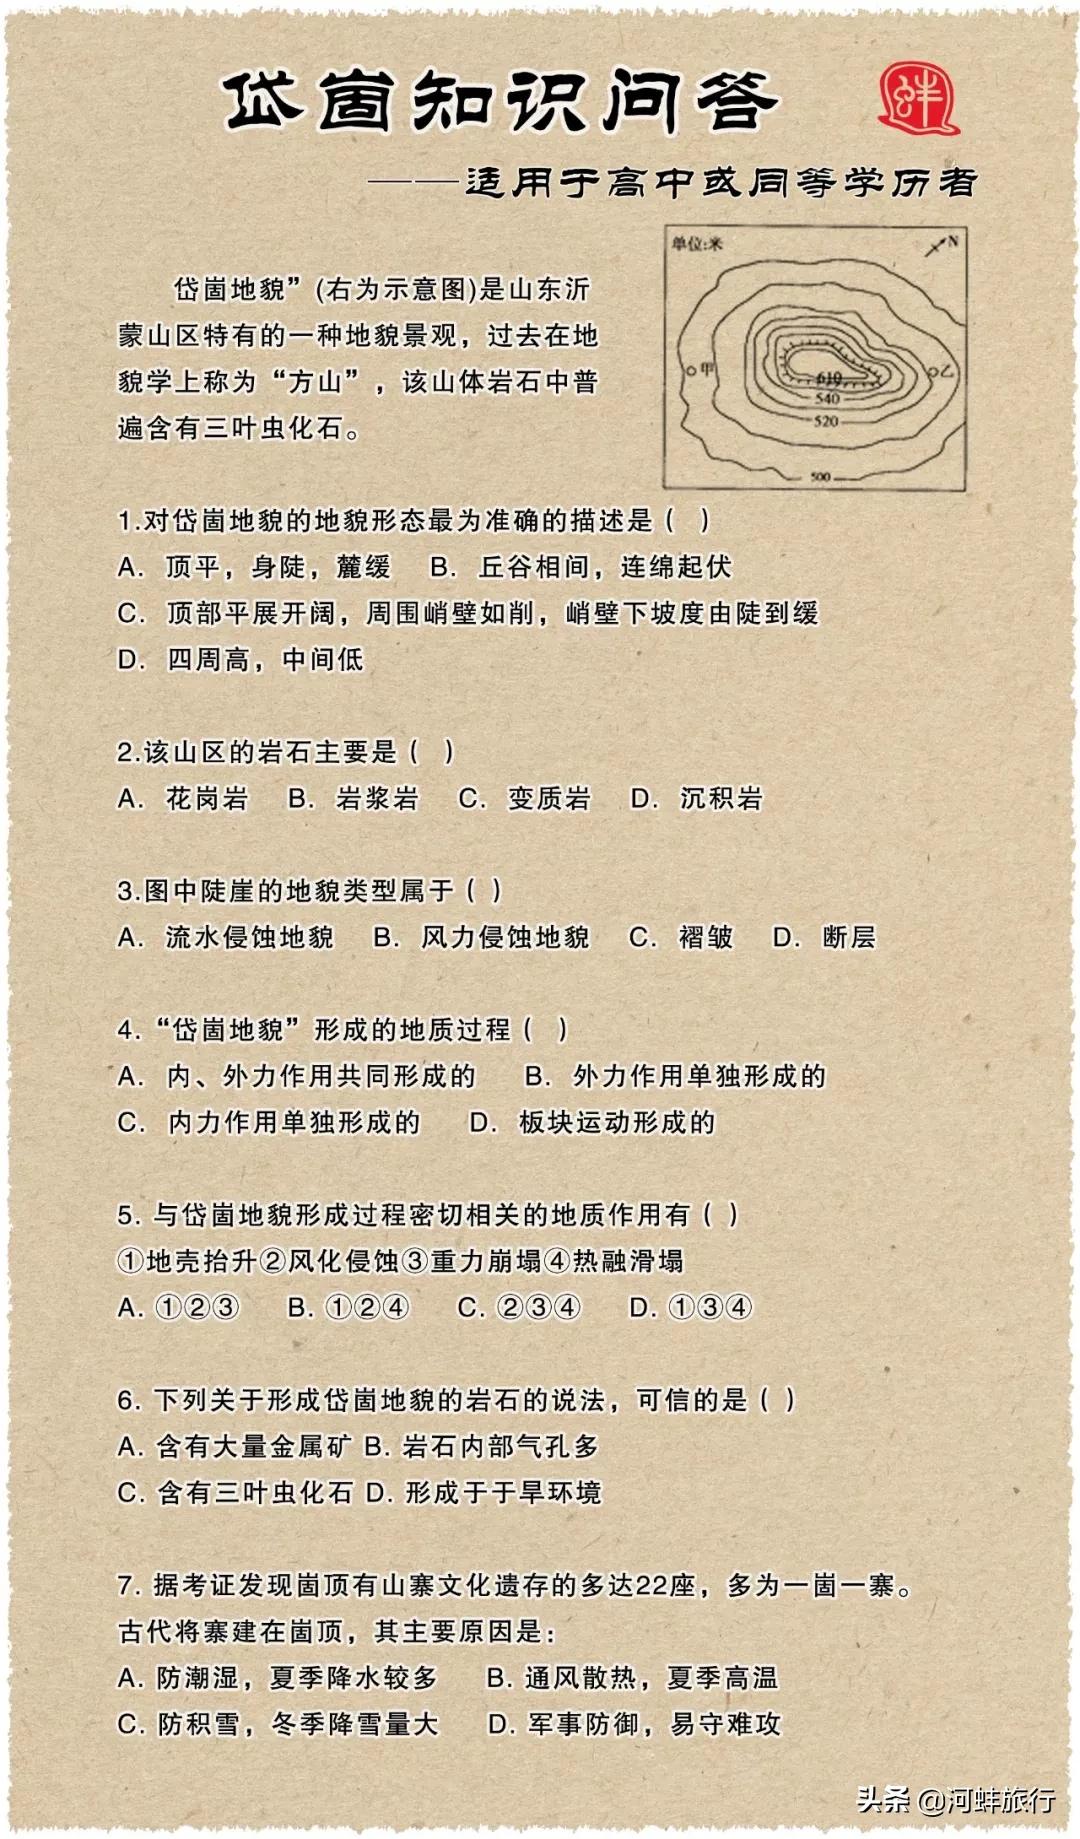 岱崮知识问答
——适用于高中或同等学历者
单位:米
N
岱崮地貌”(右为示意图)是山东沂
蒙山区特有的一种地貌景观，过去在地
貌学上称为“方山”，该山体岩石中普
遍含有三叶虫化石。
甲
乙
610
540
520
500
1.对岱崮地貌的地貌形态最为准确的描述是（ ）
A. 顶平，身陡，麓缓 B. 丘谷相间，连绵起伏
C. 顶部平展开阔，周围峭壁如削，峭壁下坡度由陡到缓
D. 四周高，中间低
2.该山区的岩石主要是（ ）
A. 花岗岩 B. 岩浆岩 C. 变质岩 D. 沉积岩
3.图中陡崖的地貌类型属于（ ）
A. 流水侵蚀地貌 B. 风力侵蚀地貌 C. 褶皱 D. 断层
4.“岱崮地貌”形成的地质过程（ ）
A. 内、外力作用共同形成的 B. 外力作用单独形成的
C. 内力作用单独形成的 D. 板块运动形成的
5. 与岱崮地貌形成过程密切相关的地质作用有（ ）
①地壳抬升②风化侵蚀③重力崩塌④热融滑塌
A. ①②③ B. ①②④ C. ②③④ D. ①③④
6. 下列关于形成岱崮地貌的岩石的说法，可信的是（ ）
A. 含有大量金属矿 B. 岩石内部气孔多
C. 含有三叶虫化石 D. 形成于于旱环境
7. 据考证发现崮顶有山寨文化遗存的多达22座，多为一崮一寨。
古代将寨建在崮顶，其主要原因是：
A. 防潮湿，夏季降水较多 B. 通风散热，夏季高温
C. 防积雪，冬季降雪量大 D. 军事防御，易守难攻
头条 @河蚌旅行